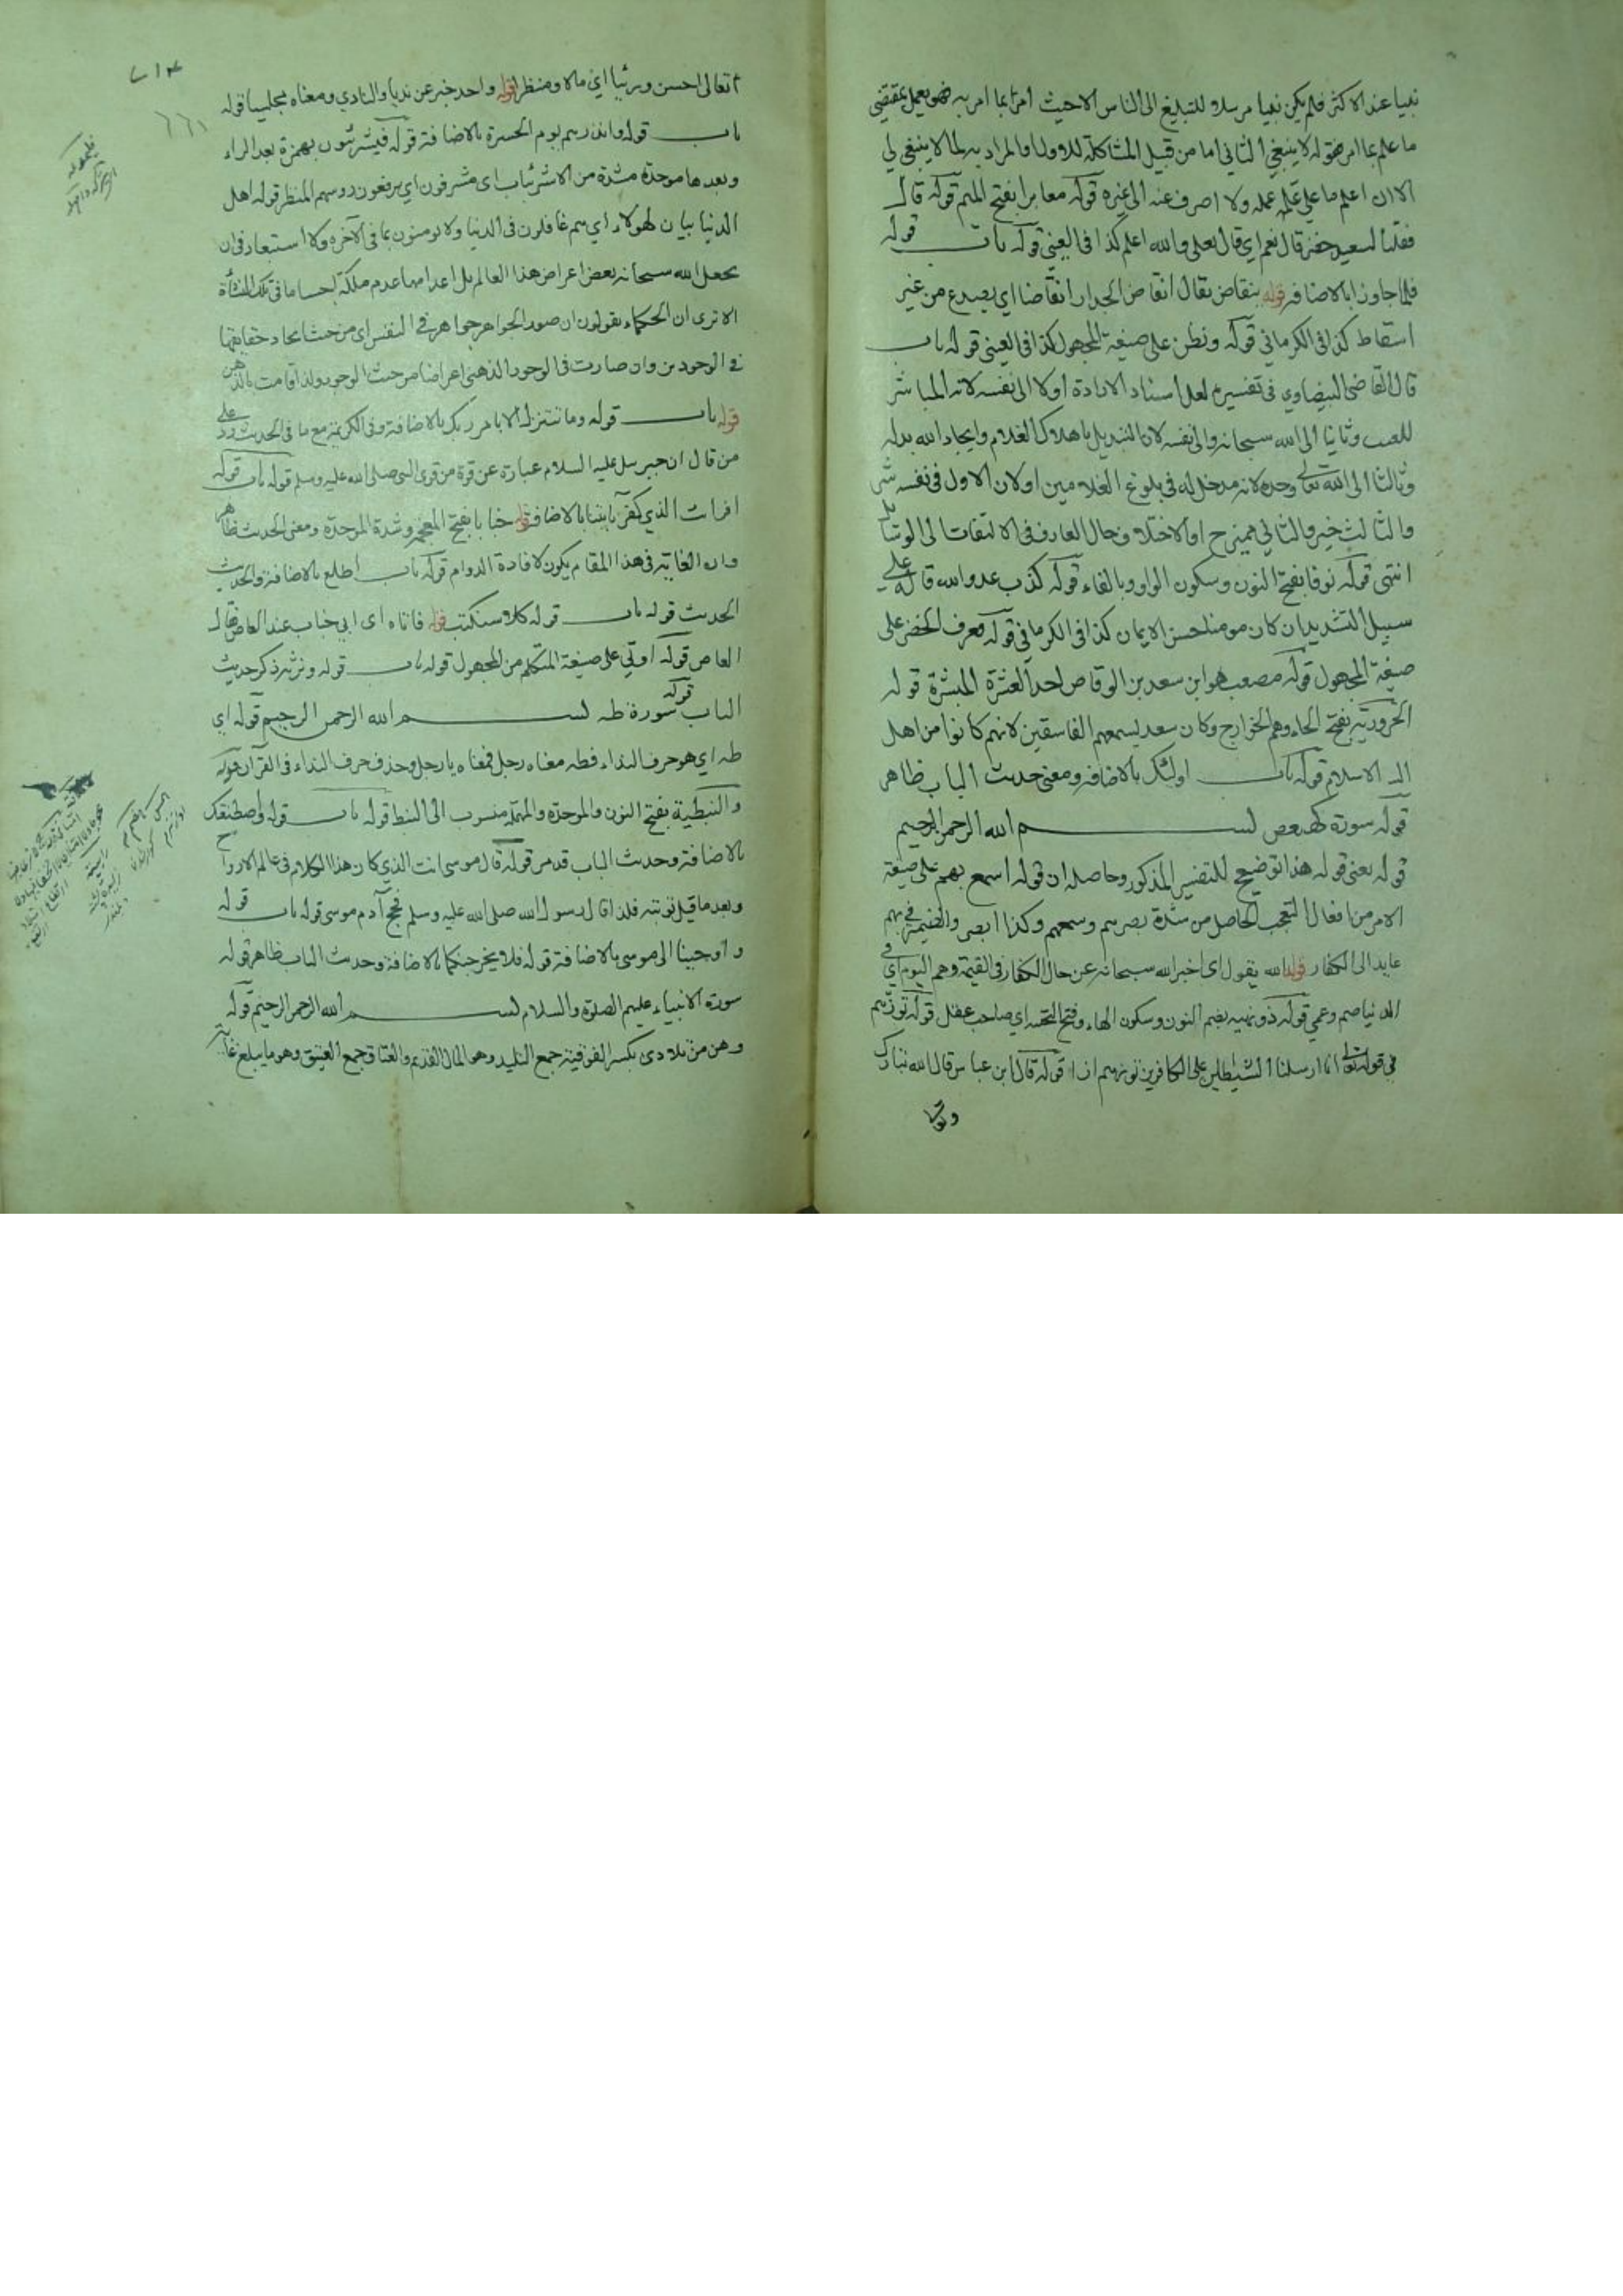 نبيا عند الاكثر فلم يكن نبيا مرسلا للتبليغ الى الناس الاحيث امرنا بما امر به فهو يعمل بمقتضى
ما علم بما امر فقوله لا ينبغي الثاني اما من قبيل المشاكلة للاول او المراد به لما لا ينبغي لي
الان اعلم ما على عمله ولا اصرف عنه الى غيره قوله معابر بفتح الميم قوله قال
فقلنا لسعيد خضر قال نعم اي قال يعلى والله اعلم كذا في العيني قوله باب قوله
فلما جاوزا بالاضافة قوله ينقاض يقال انقاض الجدار انقاضا اي يصدع من غير
اسقاط كذا في الكرماني قوله ونظن على صيغة المجهول كذا في العيني قوله باب
قال القاضي البيضاوي في تفسيره لعل اسناد الارادة اولا الى نفسه لانه المباشر
للعيب وثانيا الى الله سبحانه والى نفسه لان التبديل باهلاك الغلام وايجاد الله بدله
وثالثا الى الله تعالى وحده لانه مدخل له في بلوغ الغلامين او لان الاول في نفسه شر
والثالث خير والثاني ممتزج او لاختلاف حال العارف في الالتفات الى الوسائط
انتهى قوله نوفا بفتح النون وسكون الواو وبالفاء قوله كذب عدو الله قاله على
سبيل التشديد ان كان مومنا حسن الايمان كذا في الكرماني قوله فعرف الخضر على
صيغة المجهول قوله مصعب هو ابن سعد بن الوقاص احد العشرة المبشرة قوله
الحرورية بفتح الحاء وهم الخوارج وكان سعد يسميهم الفاسقين لانهم كانوا من اهل
الاسلام قوله باب اولئك بالاضافة ومعنى حديث الباب ظاهر
قوله سورة كهيعص بسم الله الرحمن الرحيم
قوله يعني قوله هذا توضيح للتفسير المذكور وحاصله ان قوله اسمع بهم على صيغة
الامر من افعال التعجب الحاصل من شدة بصرهم وسمعهم وكذا ابصر والضمير في بهم
عايد الى الكفار قوله الله يقول اي اخبر الله سبحانه عن حال الكفار في القيمة وهم اليوم اي في
الدنيا صم وعمي قوله ذو نهية بضم النون وسكون الهاء وفتح التحتية اي صاحب عقل قوله تؤزهم
في قوله تعالى انا ارسلنا الشيطين على الكافرين تؤزهم ازا قوله قال ابن عباس قال الله تبارك
وتعا
تعالى احسن ورئيا اي مالا ومنظرا قوله واحد خبر عن نديا والنادي ومعناه مجلسا قوله
باب قوله وانذرهم يوم الحسرة بالاضافة قوله فيشرئبون بهمزة بعد الراء
وبعدها موحدة مشدة من الاشرئباب اي مشرفون اي يرفعون روسهم المنظر قوله اهل
الدنيا بيان لهولاء اي هم غافلون في الدنيا ولا يومنون بما في الآخرة ولا استبعاد في ان
يجعل الله سبحانه بعض اعراض هذا العالم بل اعدامها عدم ملكة اجساما في تلك النشأة
الا ترى ان الحكماء يقولون ان صور الجواهر جواهر في النفس اي من حيث اتحاد حقايقها
في الوجودين وان صارت في الوجود الذهني اعراضا من حيث الوجود ولذا قامت بالذهن
قوله باب قوله وما نتنزل الا بامر ربك بالاضافة وفي الكريمة مع ما في الحديث رد على
من قال ان جبرسل عليه السلام عبارة عن قوة من قوى النبي صلى الله عليه وسلم قوله باب قوله
افرات الذي كفر بآيتنا بالاضافة قوله خبابا بفتح المعجمة وشدة الموحدة ومعنى الحديث ظاهر
وان الغاية في هذا المقام يكون لافادة الدوام قوله باب اطلع بالاضافة والحديث
الحديث قوله باب قوله كلا سنكتب قوله فاتاه اي ابي خباب عند العاص فقال
العاص قوله اوتي على صيغة المتكلم من المجهول قوله باب قوله ونرثه ذكر حديث
الباب قوله سورة طه بسم الله الرحمن الرحيم قوله اي
طه اي هو حرف النداء فطه معناه رجل فمعناه يا رجل وحذف حرف النداء في القرآن قوله
والنبطية بفتح النون والموحدة والمهملة منسوب الى النبط قوله باب قوله واصطنعتك
بالاضافة وحديث الباب قد مر قوله قال موسى انت الذي كان هذا الكلام في عالم الارواح
وبعد ما قبل توبته فلذا قال رسول الله صلى الله عليه وسلم فحج آدم موسى قوله باب قوله
واوحينا الى موسى بالاضافة قوله فلا يخرجنكما بالاضافة وحديث الباب ظاهر قوله
سورة الانبياء عليهم الصلوة والسلام بسم الله الرحمن الرحيم قوله
وهن من تلادي بكسر الفوقية جمع التليد وهو المال القديم والعتاق جمع العتيق وهو ما يبلغ غاية